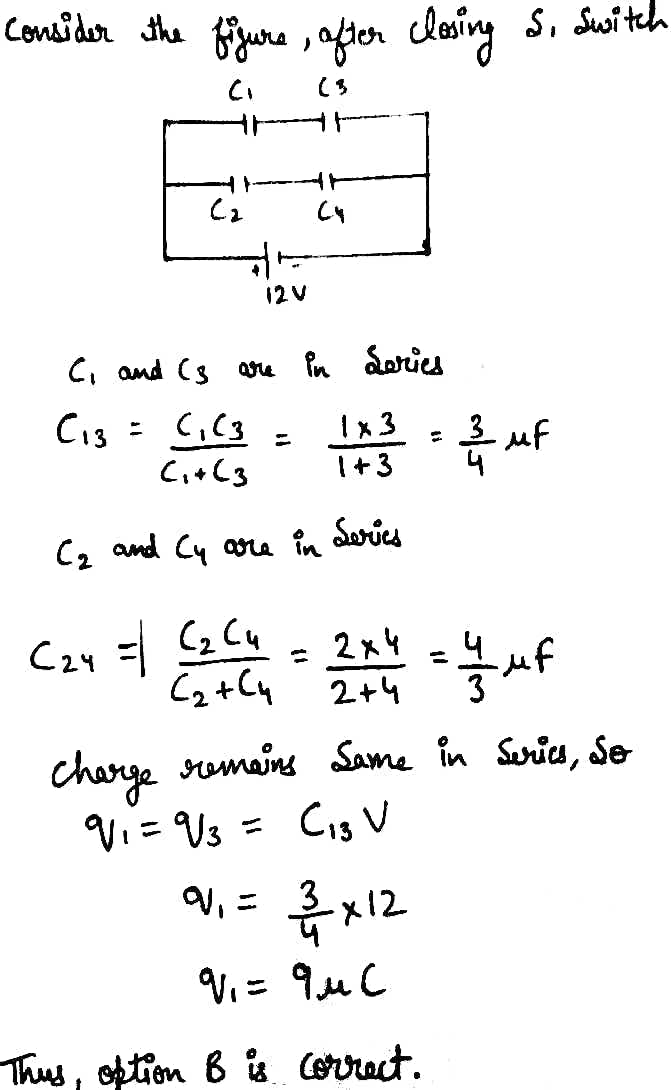 Consider the figure, after closing S₁ Switch
C₁ C3
C₂ C₄
+ -
12V
C₁ and C3 are in Series
C₁₃ = C₁C₃ / C₁+C₃ = 1×3 / 1+3 = 3/4 μF
C₂ and C₄ are in Series
C₂₄ = C₂C₄ / C₂+C₄ = 2×4 / 2+4 = 4/3 μF
Charge remains Same in Series, So
q₁ = q₃ = C₁₃ V
q₁ = 3/4 × 12
q₁ = 9μC
Thus, option B is correct.